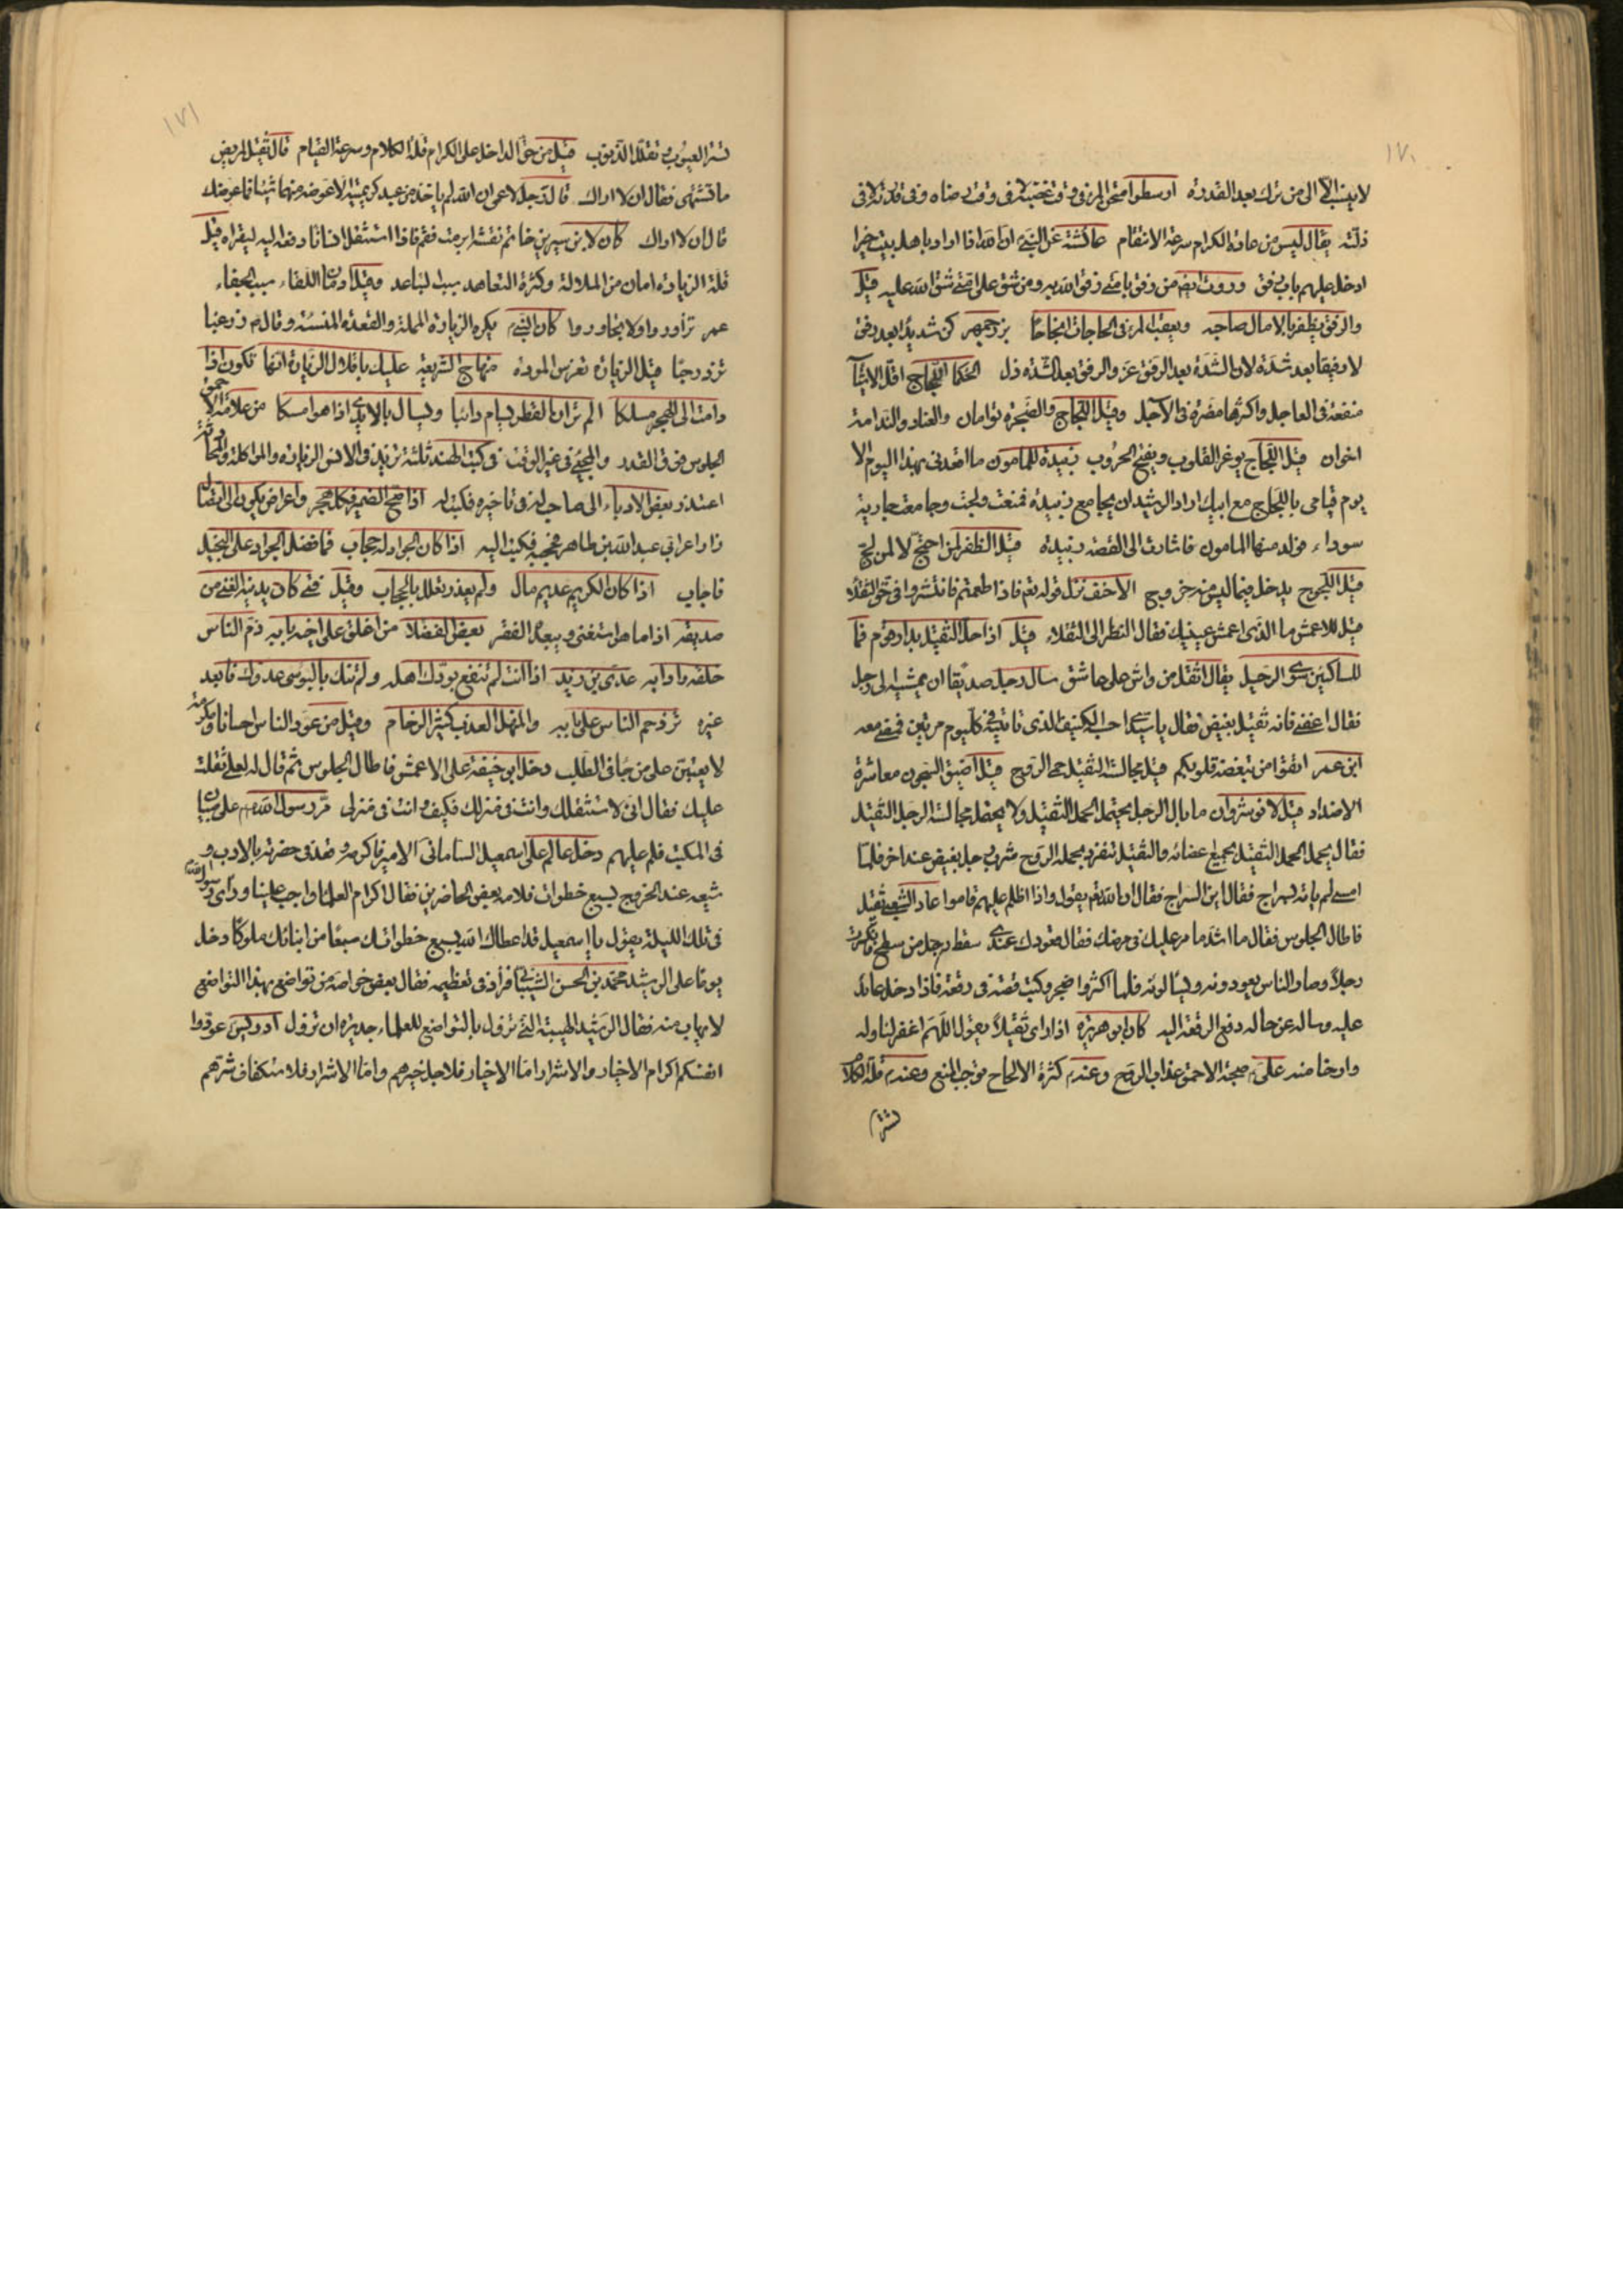 ١٧٠
لا ينسب الا الى من ترك بعد القدرة ارسطو امتحن المرء في وقت غضبه لا في وقت رضاه وفي قدرته لا في
ذلته يقال ليس من عادة الكرام سرعة الانتقام عائشة عن النبي ان الله اذا اراد باهل بيت خيرا
ادخل عليهم باب رفق وروت ايضا من رفق بامتي رفق الله به ومن شق على امتي شق الله عليه قيل
والرفق يظفر بالامال صاحبه ويعقب المرء في الحاجات انجاحا بزرجمهر كن شديدا بعد رفق
لا رفيقا بعد شدة لان الشدة بعد الرفق عز والرفق بعد الشدة ذل الحكما اللجاج اقل الاشيآ
منفعة في العاجل واكثرها مضرة في الآجل وقيل اللجاج والضجرة توامان والعناد والندامة
اخوان قيل اللجاج يوغر القلوب ويفتح الحروب زبيدة للمامون ما اقعدني بهذا اليوم الا
يوم قيامي باللجاج مع ابيك اراد الرشيد ان يجامع زبيدة فمنعت ولجت وجامعت جارية
سوداء فولد منها المامون فاشارت الى القصة زبيدة قيل الظفر لمن احتج لا لمن لج
قيل اللجوج يدخل فيما ليس منه خروج الاحنف نزل قوله تعم فاذا طعمتم فانتشروا في حق الثقلا
قيل للاعمش ما الذي اعمش عينيك فقال النظر الى الثقلاء قيل اذا حل الثقيل بدار قوم فما
للساكنين سوى الرحيل يقال اثقل من واش على عاشق سال رجل صديقا ان يمشي الى رجل
فقال اعفني فانه ثقيل بغيض فقال يا سيدي احسبه الكنيف الذي تاتيه في كل يوم مرتين فمضى معه
ابن عمر اتقوا من تبغضه قلوبكم قيل مجالسة الثقيل حمى الروح قيل اضيق السجون معاشرة
الاضداد قيل لانوشروان ما بال الرجل يحتمل الحمل الثقيل ولا يحتمل مجالسة الرجل الثقيل
فقال يحمل الحمل الثقيل بجميع اعضائه والثقيل تنفرد بحمله الروح شرب رجل بغيض عند اخر فلما
امسى لم ياته بسراج فقال اين السراج فقال ان الله تعم يقول واذا اظلم عليهم قاموا عاد الشعبي ثقيل
فاطال الجلوس فقال ما اشد ما مر عليك في مرضك فقال قعودك عندى سقط رجل من سطح فانكسرت
رجلاه وصار الناس يعودونه ويسألونه فلما اكثروا ضجر وكتب قصته في رقعة فاذا دخل عائد
عليه وساله عن حاله دفع الرقعة اليه كان ابو هريرة اذا راى ثقيلا يقول اللهم اغفر لنا وله
وارحنا منه علي صحبة الاحمق عذاب الروح وعنه كثرة الالحاح توجب المنع وعنه قلة الكلام
تستر
١٧١
تستر العيوب وتقلل الذنوب قيل من حق الداخل على الكرام قلة الكلام وسرعة القيام قال ثقيل لمريض
ما تشتهى فقال ان لا اراك قال رجل لاعمى ان الله لم ياخذ من عبد كريمتيه الا عوضه منهما شيئا فما عوضك
قال ان لا اراك كان لابن سيرين خاتم نقشه ابرمت فقم فاذا استثقل انسانا دفعه اليه ليقراه قيل
قلة الزيارة امان من الملالة وكثرة التعاهد سبب لتباعد وقيل ادمان اللقاء سبب الجفاء
عمر تزاوروا ولا تجاوروا كان النبي يكره الزيارة المملة والقعدة المنسئة وقال زر غبا
تزدد حبا قيل الزيارة تغرس المودة منهاج الشريعة عليك باقلال الزيارة انها تكون اذا
دامت الى الهجر مسلكا الم تر ان القطر يسام دائبا ويسال بالايدى اذا هو امسكا من علامة الاحمق
الجلوس فوق القدر والمجئ في غير الوقت في كتب الهند ثلثة تزيد في الانس الزيارة والمواكلة والمحادثة
اعتذر بعض الادباء الى صاحب له في تاخيره فكتب اليه اذا صح الضمير فكل هجر واعراض يكون له انقضا
زار اعرابي عبد الله بن طاهر فحجبه فكتب اليه اذا كان الجواد له حجاب فما فضل الجواد على البخيل
فاجاب اذا كان الكريم عديم مال ولم يعذر تعلل بالحجاب وقيل فتى كان يدنيه الغنى من
صديقه اذا ما هو استغنى ويبعده الفقر بعض الفضلا من اغلق على اخيه بابه ذم الناس
خلقه وادابه عدى بن زيد اذا انت لم تنفع بودك اهله ولم تنك بالبوسى عدوك فابعد
غيره تزدحم الناس على بابه والمنهل العذب كثير الزحام وقيل من عود الناس احسانا ومكرمة
لا يعتبن على من جا في الطلب دخل ابو حنيفة على الاعمش فاطال الجلوس ثم قال له لعلي ثقلت
عليك فقال اني لاستثقلك وانت في منزلك فكيف وانت في منزلى مر رسول الله على صبيان
في المكتب فلم عليهم دخل عالم على اسمعيل الساماني الامير فاكرمه وقعد في حضرته بالادب و
شيعه عند الخروج بسبع خطوات فلامه بعض الحاضرين فقال اكرام العلما واجب علينا ورأى رسول الله
في تلك الليلة يقول يا اسمعيل قد اعطاك الله بسبع خطواتك سبعا من ابنائك ملوكا دخل
يوما على الرشيد محمد بن الحسن الشيباني فزاد في تعظيمه فقال بعض خواصه من تواضع بهذا التواضع
لا يهاب منه فقال الرشيد الهيبة التي تزول بالتواضع للعلماء جديرة ان تزول ادريس عودوا
انفسكم اكرام الاخيار والاشرار اما الاخيار فلاجل خيرهم واما الاشرار فلاستكفاف شرهم